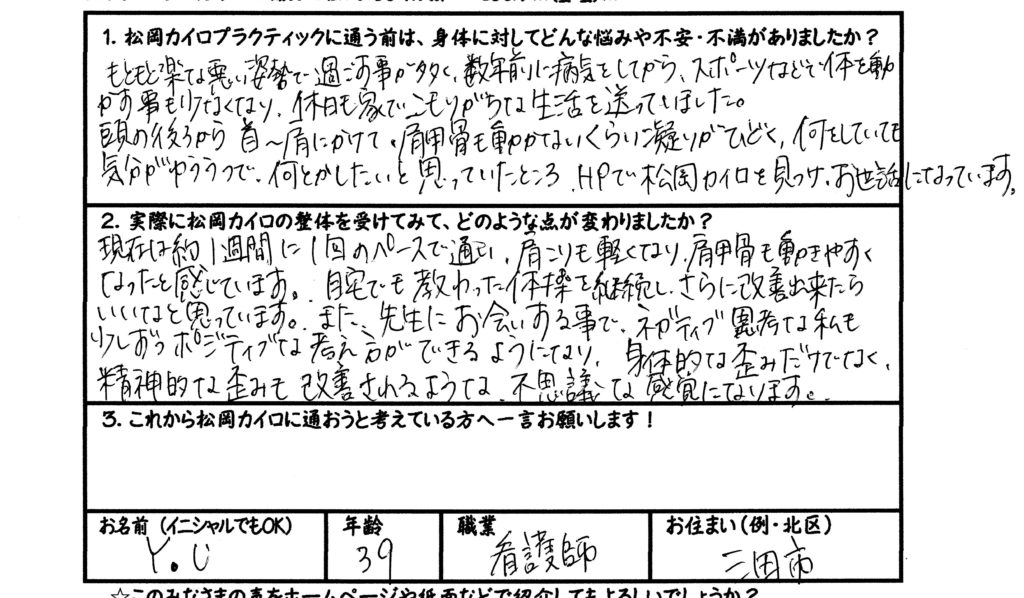 1. 松岡カイロプラクティックに通う前は、身体に対してどんな悩みや不安・不満がありましたか？
もともと楽な悪い姿勢で過ごす事が多く、数年前に病気をしてから、スポーツなどで体を動
かす事も少なくなり、休日も家でこもりがちな生活を送っていました。
頭の後ろから首〜肩にかけて、肩甲骨も動かないくらい凝りがひどく、何をしていても
気分がゆううつで、何とかしたいと思っていたところ、HPで松岡カイロを見つけ、お世話になっています。
2. 実際に松岡カイロの整体を受けてみて、どのような点が変わりましたか？
現在は約1週間に1回のペースで通い、肩こりも軽くなり、肩甲骨も動きやすく
なったと感じています。自宅でも教わった体操を継続し、さらに改善出来たら
いいなと思っています。また、先生にお会いする事で、ネガティブ思考な私も
少しずつポジティブな考え方ができるようになり、身体的な歪みだけでなく、
精神的な歪みも改善されるような、不思議な感覚になります。
3. これから松岡カイロに通おうと考えている方へ一言お願いします！
お名前（イニシャルでもOK） 年齢 職業 お住まい（例・北区）
Y.U 39 看護師 三田市
☆このみなさまの声をホームページや紙面などで紹介してもよろしいでしょうか？